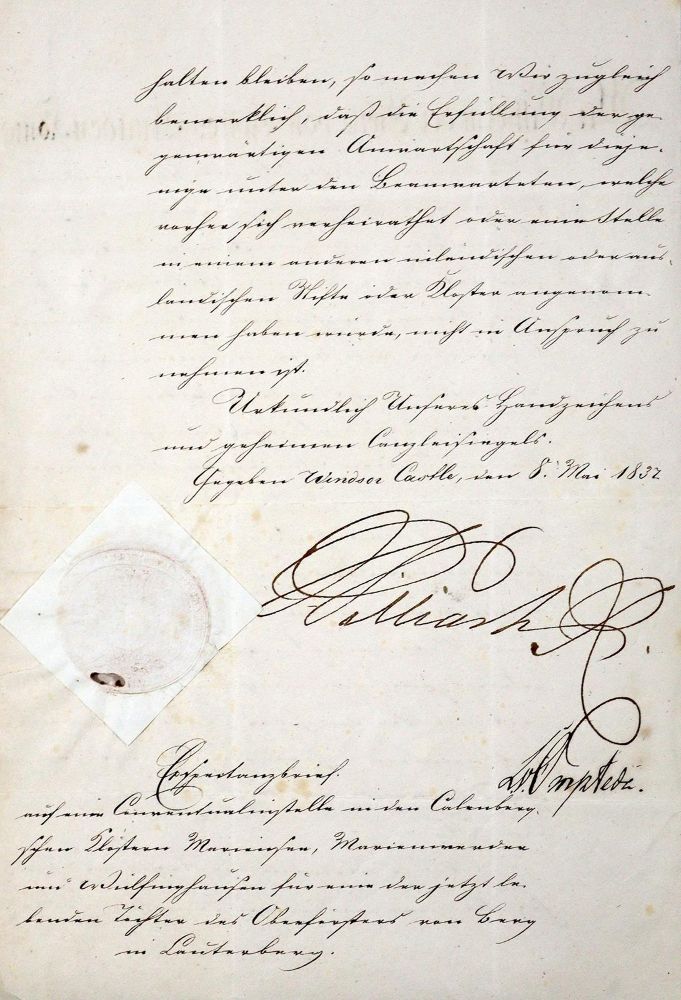 halten bleiben, so machen Wir zugleich
bemerklich, daß die Erfüllung der ge-
genwärtigen Anwartschaft für dieje-
nige unter den Beanwarteten, welche
vorher sich verheirathet oder eine Stelle
in einem anderen inländischen oder aus-
ländischen Stifte oder Kloster angenom-
men haben würde, nicht in Anspruch zu
nehmen ist.
Urkundlich Unseres Handzeichens
und geheimen Canzleisiegels.
Gegeben Windsor Castle, den 8. Mai 1832
William R.
L v Ompteda.
Exspectanzbrief.
auf eine Conventualinstelle in den Calenberg-
schen Klöstern Mariensee, Marienwerder
und Wülfinghausen für eine der jetzt le-
benden Töchter des Oberförsters von Berg
in Lauterberg.